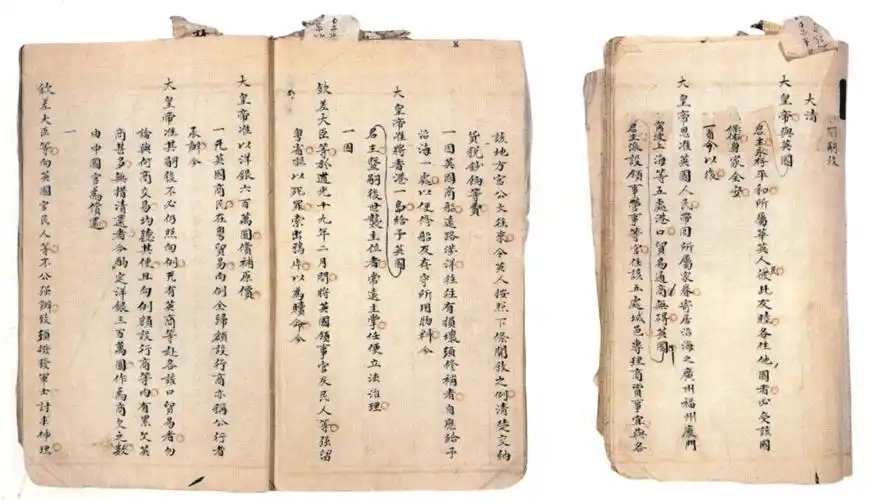 大清
大皇帝與英國
君主永存平和所屬華英人民彼此友睦各住他國者必受該國
保佑身家全安
一自今以後
大皇帝恩准英國人民帶同所屬家眷寄居沿海之廣州福州廈門
寧波上海等五處港口貿易通商無礙英國
君主派設領事管事等官住該五處城邑專理商賈事宜與各
該地方官公文往來令英人按照下條開敘之例清楚交納
貨稅鈔餉等費
一因英國商船遠路涉洋往往有損壞須修補者自應給予
沿海一處以便修船及存守所用物料今
大皇帝准將香港一島給予英國
君主暨嗣後世襲主位者常遠主掌任便立法治理
一因
欽差大臣等於道光十九年二月間將英國領事官及民人等強留
粵省嚇以死罪索出鴉片以為贖命今
大皇帝准以洋銀六百萬圓償補原價
一凡英國商民在粵貿易向例全歸額設行商亦稱公行者
承辦今
大皇帝准其嗣後不必仍照向例凡有英商等赴各該口貿易者勿
論與何商交易均聽其便且向例額設行商等內有累欠英
商甚多無措清還者今酌定洋銀三百萬圓作為商欠之數
由中國官為償還
一
欽差大臣等向英國官民人等不公強辦致須撥發軍士討求伸理